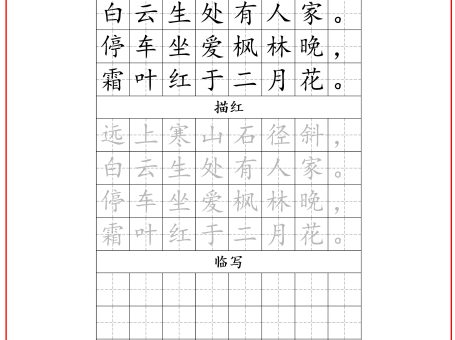 白云生处有人家。
停车坐爱枫林晚，
霜叶红于二月花。
描红
远上寒山石径斜，
白云生处有人家。
停车坐爱枫林晚，
霜叶红于二月花。
临写